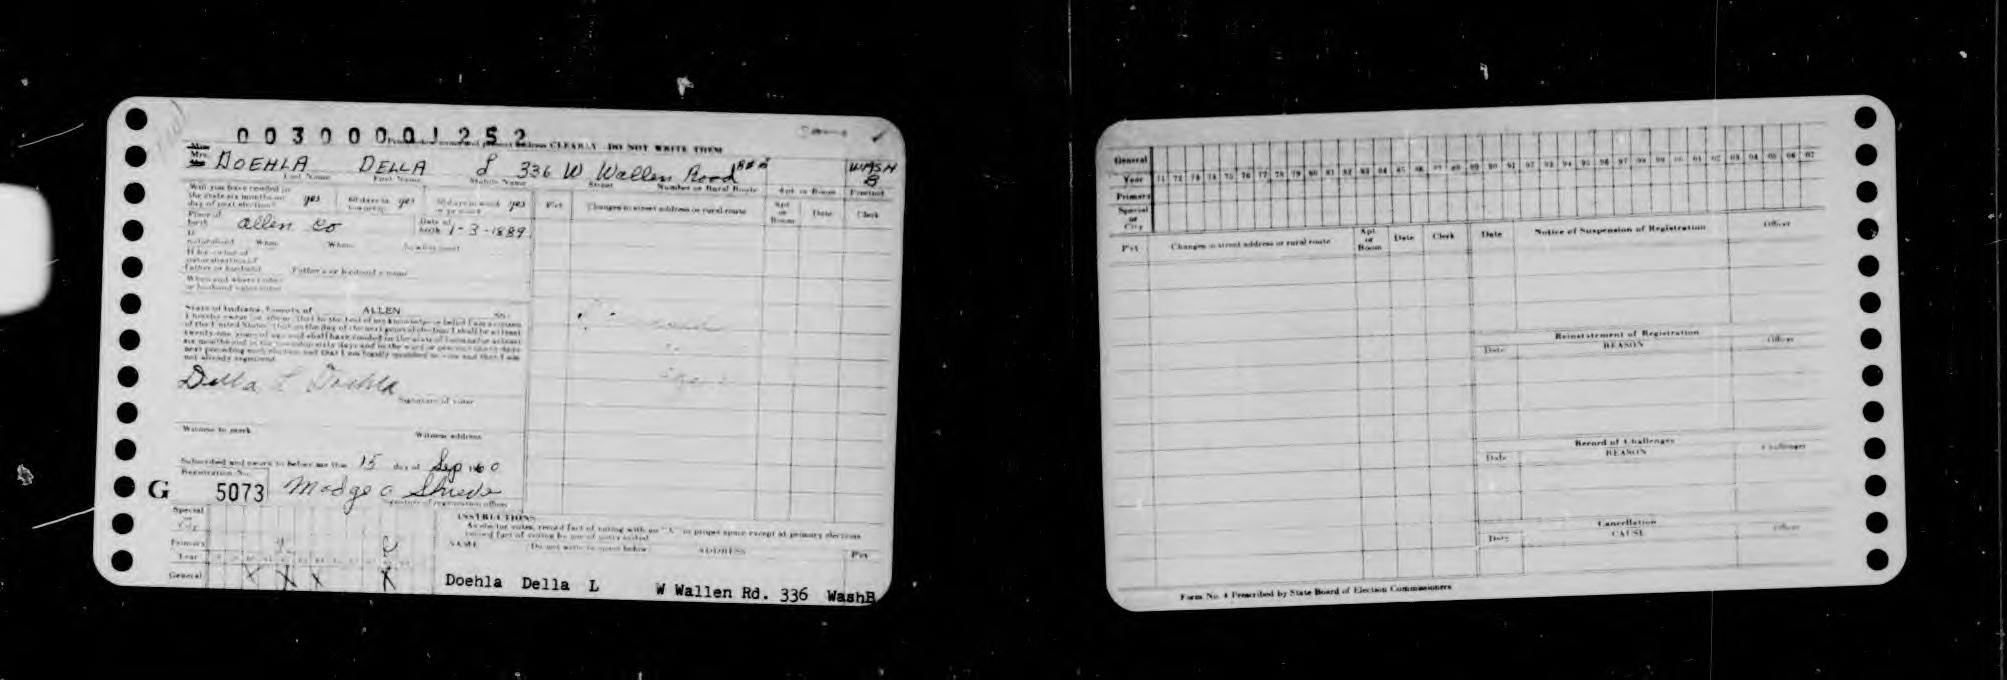 00300001252
name and present address CLEARLY DO NOT WRITE THEM
Mrs. DOEHLA DELLA L 336 W Wallen Road R#2 WASH B
Last Name First Name Middle Name Street Number or Rural Route Apt or Room Precinct
Will you have resided in the state six months on day of next election? yes 60 days in township yes 30 days in ward or precinct yes
Pct Changes in street address or rural route Apt or Room Date Clerk
Place of birth Allen Co Date of birth 1-3-1889
If naturalized When Where In what court
If by virtue of naturalization of father or husband Father's or husband's name
When and where father or husband naturalized
State of Indiana, County of ALLEN SS:
I hereby swear (or affirm) that to the best of my knowledge or belief I am a citizen
of the United States, that on the day of the next general election I shall be at least
twenty-one years of age and shall have resided in the state of Indiana for at least
six months and in the township sixty days and in the ward or precinct thirty days
next preceding such election and that I am legally qualified to vote and that I am
not already registered
Della L Doehla
Signature of voter
Witness to mark Witness address
Subscribed and sworn to before me this 15 day of Sep 1960
Registration No.
G 5073 Madge A
Signature of registration officer
Special or City
Primary
Year
General X X X X
INSTRUCTIONS
As elector votes, record fact of voting with an "X" in proper space except at primary elections
record fact of voting by use of party initial
NAME Do not write in space below ADDRESS Pct
Doehla Della L W Wallen Rd. 336 WashB
General
Year 71 72 73 74 75 76 77 78 79 80 81 82 83 84 85 86 87 88 89 90 91 92 93 94 95 96 97 98 99 00 01 02 03 04 05 06 07
Primary
Special or City
Pct Changes in street address or rural route Apt or Room Date Clerk Date Notice of Suspension of Registration Officer
Reinstatement of Registration
Date REASON Officer
Record of Challenges
Date REASON Challenger
Cancellation
Date CAUSE Officer
Form No. 4 Prescribed by State Board of Election Commissioners